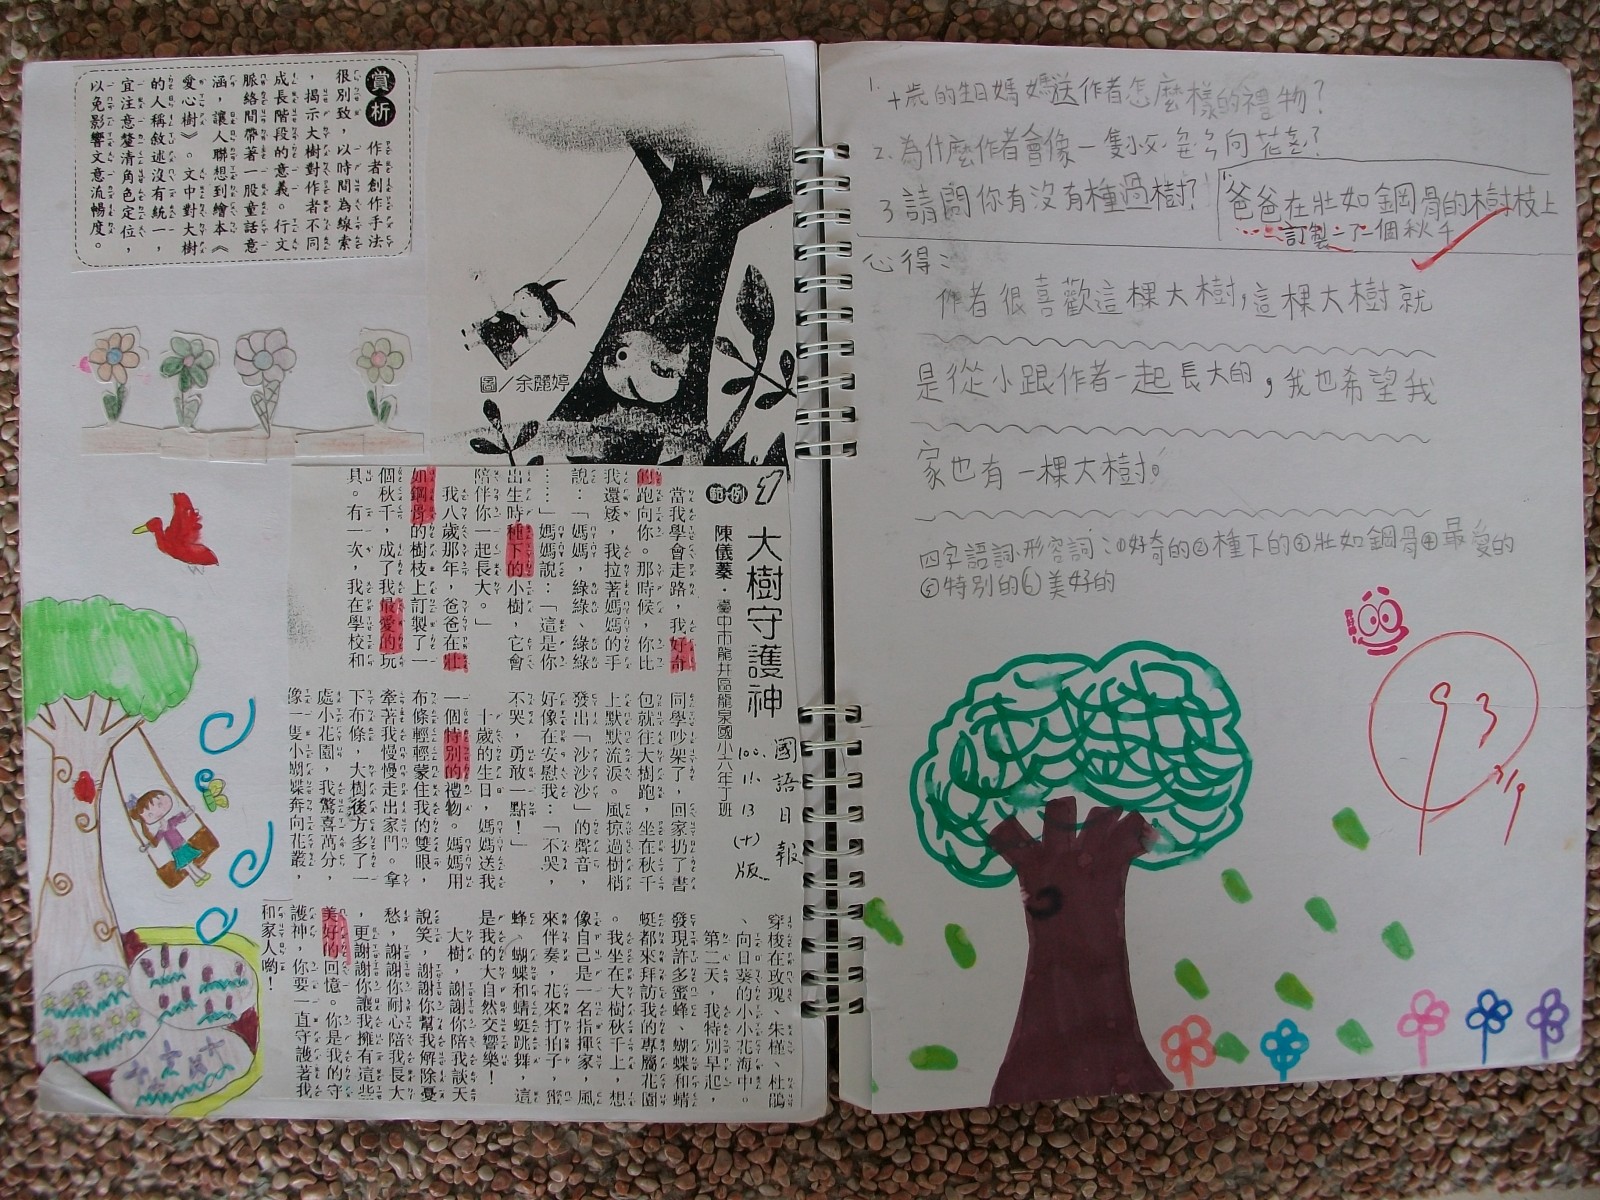 賞析
作者創作手法
很別致，以時間為線索
，揭示大樹對作者不同
成長階段的意義。行文
脈絡間帶著一股童話意
涵，讓人聯想到繪本《
愛心樹》。文中對大樹
的人稱敘述沒有統一，
宜注意釐清角色定位，
以免影響文意流暢度。
圖／余麗婷
範例
大樹守護神
陳儀蓁・臺中市龍井區龍泉國小六年丁班
國語日報
100.11.13(十)版
當我學會走路，我好奇
的跑向你。那時候，你比
我還矮，我拉著媽媽的手
說：「媽媽，綠綠、綠綠
……」媽媽說：「這是你
出生時種下的小樹，它會
陪伴你一起長大。」
我八歲那年，爸爸在壯
如鋼骨的樹枝上訂製了一
個秋千，成了我最愛的玩
具。有一次，我在學校和
同學吵架了，回家扔了書
包就往大樹跑，坐在秋千
上默默流淚。風掠過樹梢
發出「沙沙沙」的聲音，
好像在安慰我：「不哭，
不哭，勇敢一點！」
十歲的生日，媽媽送我
一個特別的禮物。媽媽用
布條輕輕蒙住我的雙眼，
牽著我慢慢走出家門。拿
下布條，大樹後方多了一
處小花園，我驚喜萬分，
像一隻小蝴蝶奔向花叢，
穿梭在玫瑰、朱槿、杜鵑
、向日葵的小小花海中。
第二天，我特別早起，
發現許多蜜蜂、蝴蝶和蜻
蜓都來拜訪我的專屬花園
。我坐在大樹秋千上，想
像自己是一名指揮家，風
來伴奏，花來打拍子，蜜
蜂、蝴蝶和蜻蜓跳舞，這
是我的大自然交響樂！
大樹，謝謝你陪我談天
說笑，謝謝你幫我解除憂
愁，謝謝你耐心陪我長大
，更謝謝你讓我擁有這些
美好的回憶。你是我的守
護神，你要一直守護著我
和家人喲！
1.十歲的生日媽媽送作者怎麼樣的禮物？
2.為什麼作者會像一隻小ㄡ ㄉㄧㄝˊ向花叢？
3.請問你有沒有種過樹？
爸爸在壯如鋼骨的樹枝上
訂製了一個秋千
心得：
作者很喜歡這棵大樹，這棵大樹就
是從小跟作者一起長大的，我也希望我
家也有一棵大樹。
四字語詞、形容詞：①好奇的②種下的③壯如鋼骨④最愛的
⑤特別的⑥美好的
93